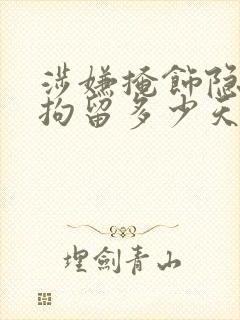 涉嫌掩飾隐
拘留多少天
埋劍青山